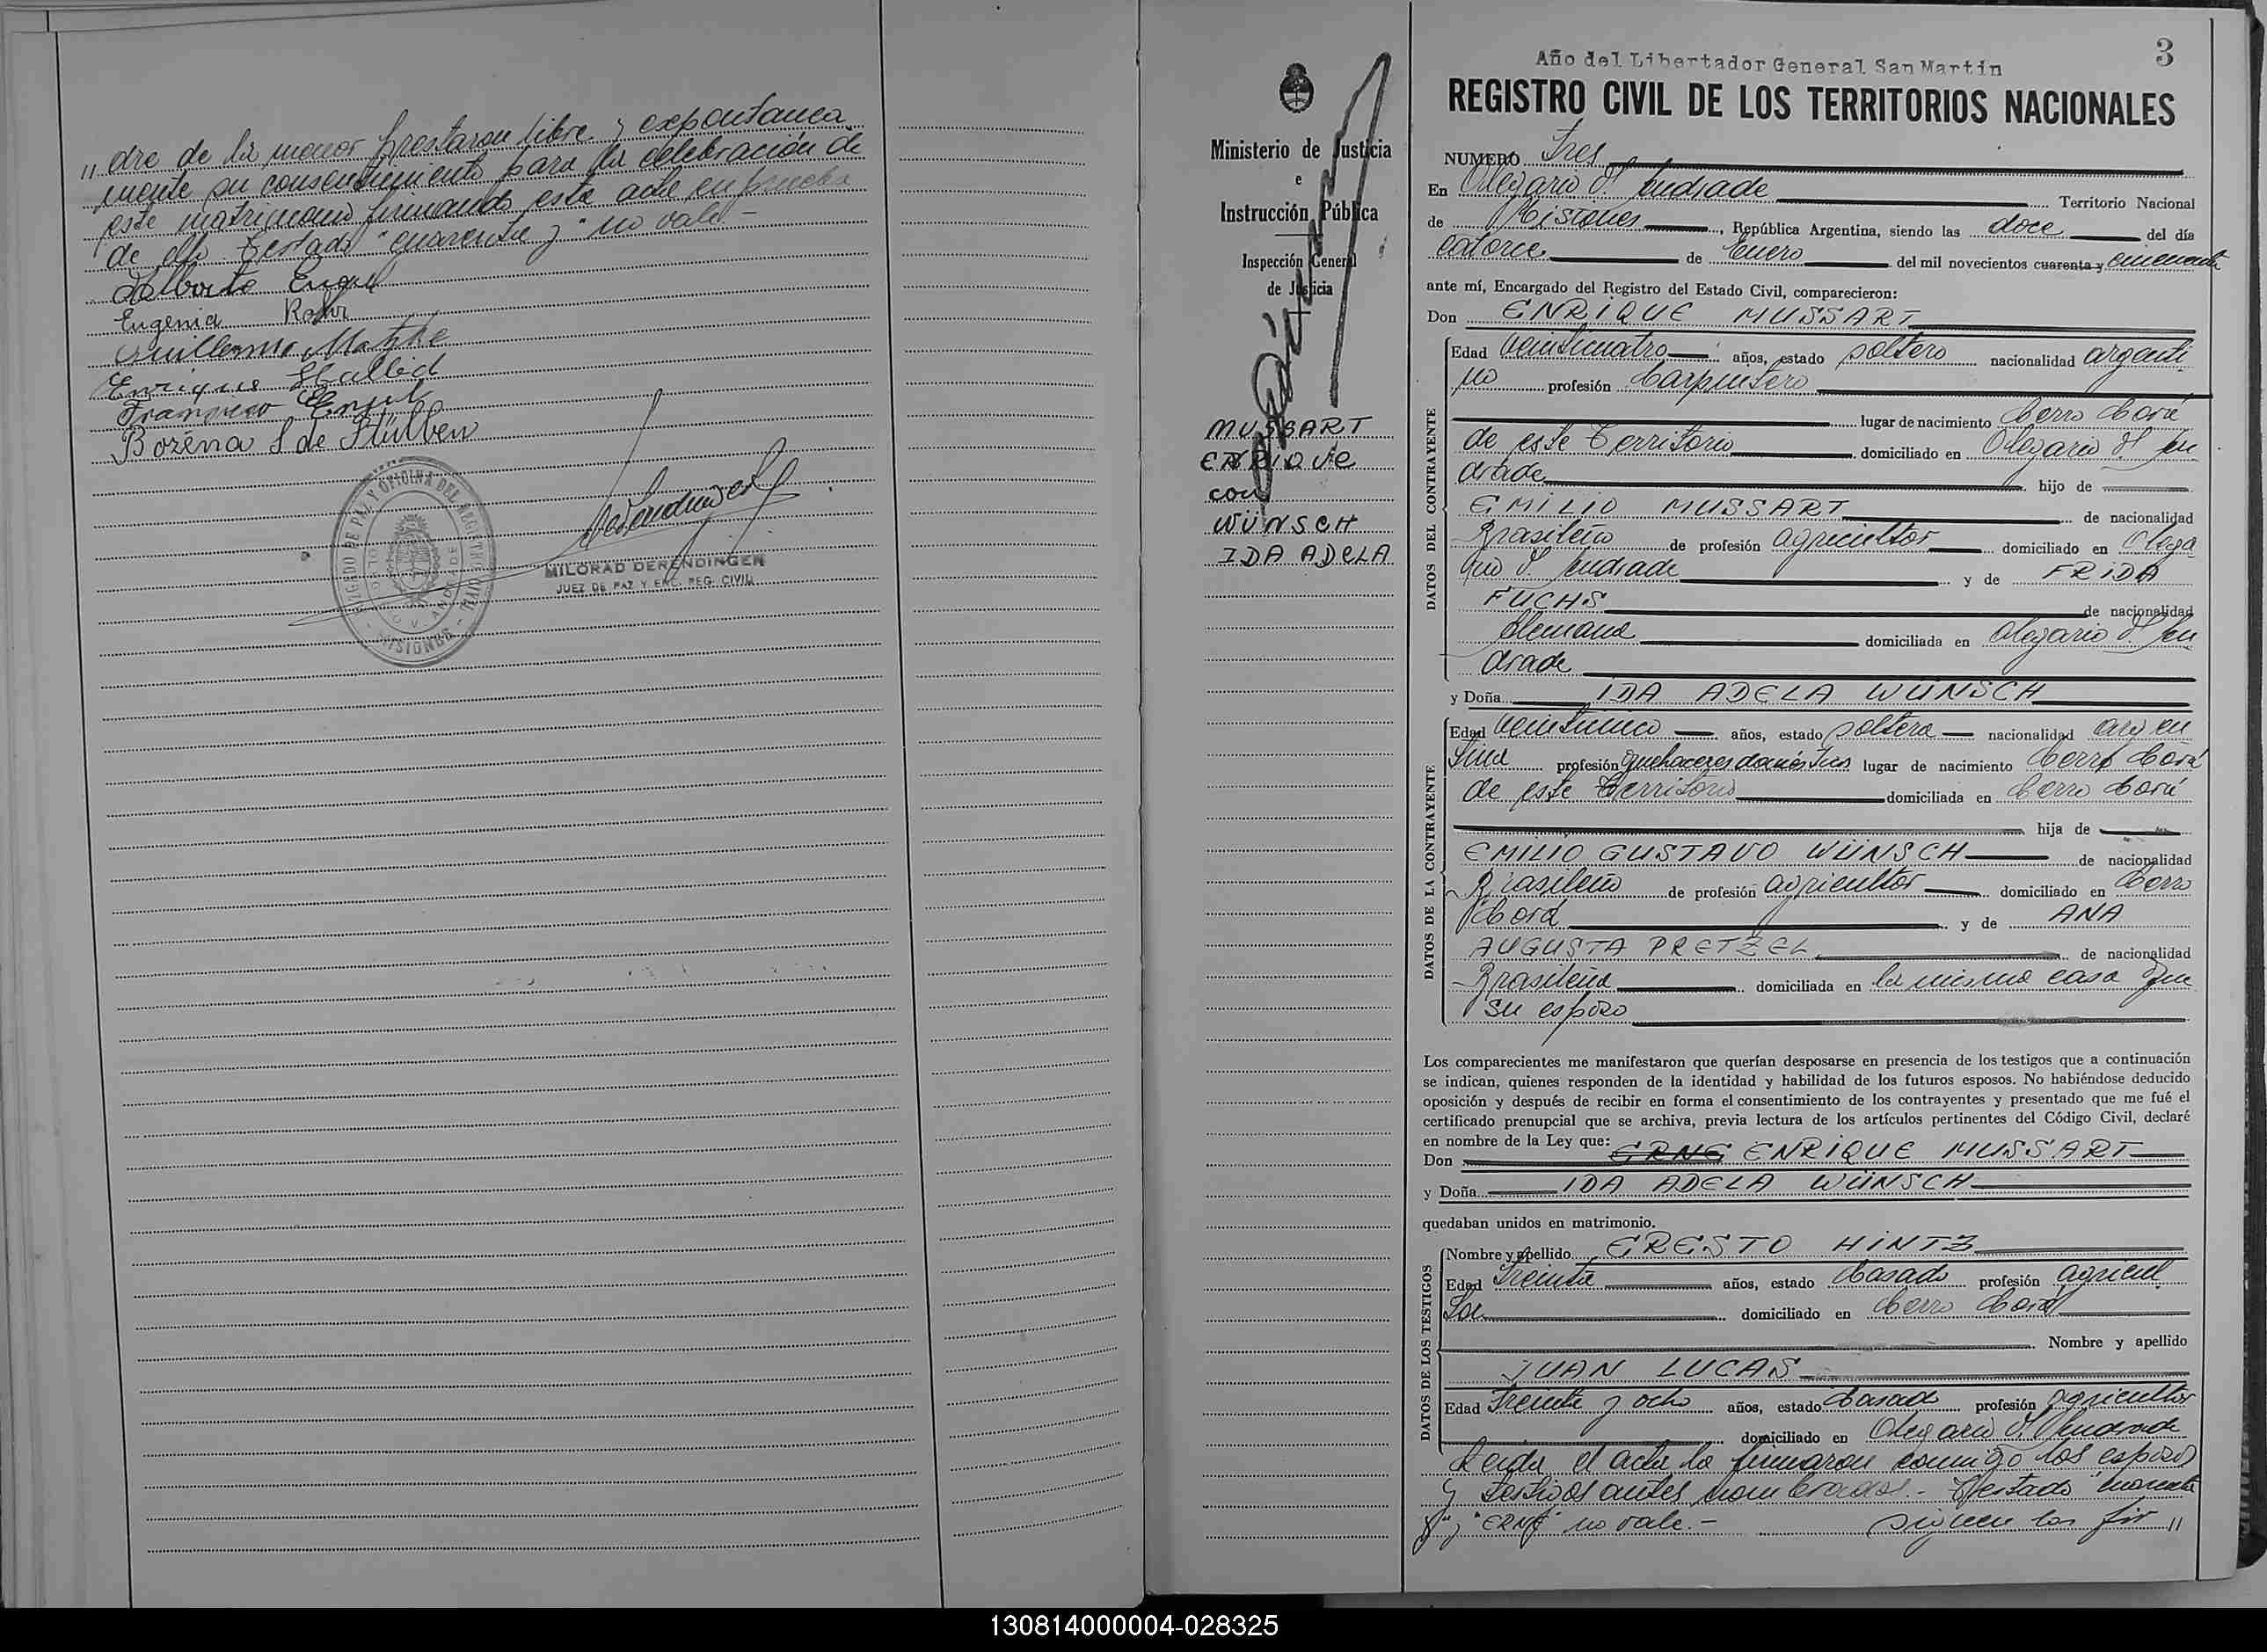 " dre de la menor prestaron libre y expontanea
mente su consentimiento para la celebración de
este matrimonio firmando esta acta en prueba
de ello. Testado "cuarenta y" no vale.-
Adalberto Engel
Eugenia Rohr
Guillermo Matzke
Enrique
Francisco Engel
Bozéna S de Stülben
JUZGADO DE PAZ Y OFICINA DEL REGISTRO CIVIL
O. V. ANDRADE
- MISIONES -
MILORAD DERENDINGER
JUEZ DE PAZ Y ENC. REG. CIVIL
Ministerio de Justicia
e
Instrucción Pública
Inspección General
de Justicia
MUSSART
ENRIQUE
con
WÜNSCH
IDA ADELA
3
Año del Libertador General San Martín
REGISTRO CIVIL DE LOS TERRITORIOS NACIONALES
NUMERO Tres
En Olegario V. Andrade Territorio Nacional
de Misiones, República Argentina, siendo las doce del día
catorce de Enero del mil novecientos cuarenta y cincuenta
ante mí, Encargado del Registro del Estado Civil, comparecieron:
Don ENRIQUE MUSSART
DATOS DEL CONTRAYENTE
Edad veinticuatro años, estado soltero nacionalidad argenti
no profesión Carpintero
lugar de nacimiento Cerro Corá
de este Territorio domiciliado en Olegario V. An
drade hijo de
EMILIO MUSSART de nacionalidad
Brasileño de profesión agricultor domiciliado en Olega
rio V. Andrade y de FRIDA
FUCHS de nacionalidad
Alemana domiciliada en Olegario V. An
drade
y Doña IDA ADELA WÜNSCH
DATOS DE LA CONTRAYENTE
Edad veintiuno años, estado soltera nacionalidad argen
tina profesión quehaceres domésticos lugar de nacimiento Cerro Corá
de este Territorio domiciliada en Cerro Corá
hija de
EMILIO GUSTAVO WÜNSCH de nacionalidad
Brasileño de profesión agricultor domiciliado en Cerro
Corá y de ANA
AUGUSTA PRETZEL de nacionalidad
Brasileña domiciliada en la misma casa que
su esposo
Los comparecientes me manifestaron que querían desposarse en presencia de los testigos que a continuación
se indican, quienes responden de la identidad y habilidad de los futuros esposos. No habiéndose deducido
oposición y después de recibir en forma el consentimiento de los contrayentes y presentado que me fué el
certificado prenupcial que se archiva, previa lectura de los artículos pertinentes del Código Civil, declaré
en nombre de la Ley que:
Don ERNE ENRIQUE MUSSART
y Doña IDA ADELA WÜNSCH
quedaban unidos en matrimonio.
DATOS DE LOS TESTIGOS
Nombre y apellido ERESTO HINTZ
Edad Treinta años, estado Casado profesión agricul
tor domiciliado en Cerro Corá
Nombre y apellido
JUAN LUCAS
Edad Treinta y ocho años, estado Casado profesión agricultor
domiciliado en Olegario V. Andrade
Leida el acta la firmaron conmigo los esposos
y testigos antes nombrados.- Testado "cuarenta
y" y "ERNE" no vale.- siguen las fir "
130814000004-028325